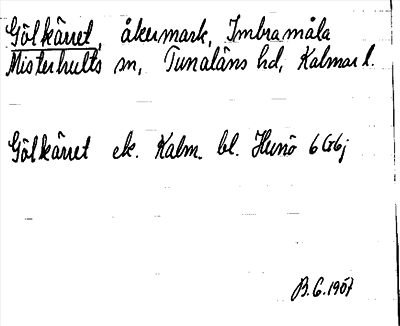 Gölkärret, åkermark, Imbramåla
Misterhults sn, Tunaläns hd, Kalmar l.
Gölkärret ek. Kalm. bl. Hunö 6G6j
B.G. 1967